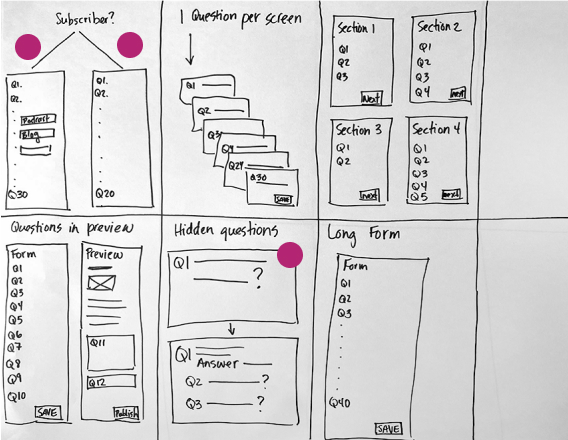 Subscriber?
Q1.
Q2.
Podcast
Blog
Q30
Q1.
Q2.
Q20
1 Question per screen
Q1
Q2
Q3
Q4
Q29
Q30
SAVE
Section 1
Q1
Q2
Q3
Next
Section 2
Q1
Q2
Q3
Q4
next
Section 3
Q1
Q2
next
Section 4
Q1
Q2
Q3
Q4
Q5
next
Questions in preview
Form
Q1
Q2
Q3
Q4
Q5
Q6
Q7
Q8
Q9
Q10
SAVE
Preview
Q11
Q12
Publish
Hidden questions
Q1
?
Q1
Answer
Q2 ?
Q3 ?
Long Form
Form
Q1
Q2
Q3
Q40
SAVE